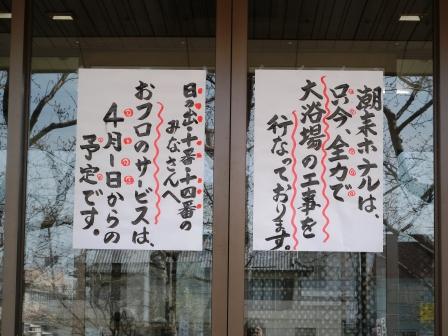 潮来ホテルは、
只今、全力で
大浴場の工事を
行なっております。
日の出・十番・十四番の
みなさんへ
おフロのサービスは、
4月1日からの
予定です。